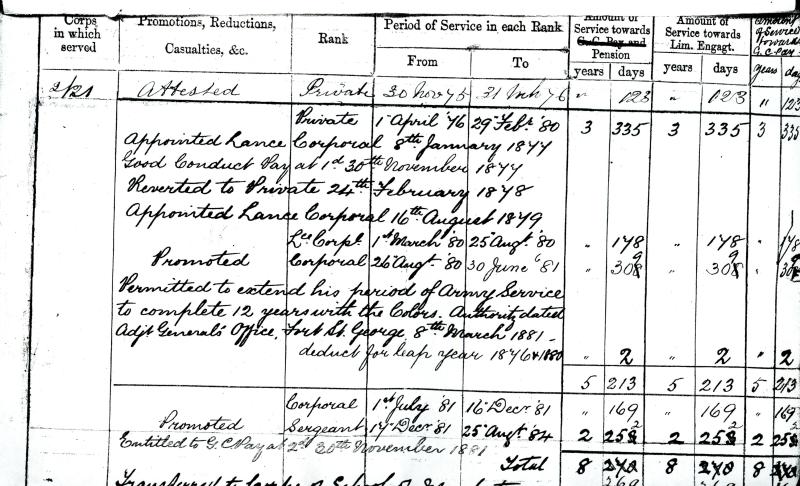 Corps in which served
Promotions, Reductions, Casualties, &c.
Rank
Period of Service in each Rank
From To
Amount of Service towards G. C. Pay and Pension
years days
Amount of Service towards Lim. Engagt.
years days
Amount of Service towards G. C. Pay
years days
2/21 Attested Private 30 Nov 75 31 Mch 76 " 123 " 123 " 123
Private 1 April '76 29 Feby. '80 3 335 3 335 3 335
Appointed Lance Corporal 8th January 1877
Good Conduct Pay at 1d 30th November 1877
Reverted to Private 24th February 1878
Appointed Lance Corporal 16th August 1879
Lce Corpl. 1st March '80 25 Augt. '80 " 178 " 178 " 178
Promoted Corporal 26 Augt. '80 30 June '81 " 309 " 309 " 309
Permitted to extend his period of Army Service
to complete 12 years with the Colors. Authority dated
Adjt Generals' Office, Fort St. George 8th March 1881 -
deduct for leap year 1876 & 1880 " 2 " 2 " 2
5 213 5 213 5 213
Corporal 1st July '81 16 Decr. '81 " 169 " 169 " 169
Promoted Sergeant 17 Decr '81 25 Augt 84 2 252 2 252 2 252
Entitled to G. C. Pay at 2d 30th November 1881
Total 8 8 8
269